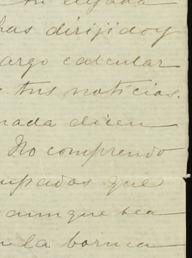 llegada
has dirijido y
argo calcular
tus noticias.
nada dicen
No comprendo
upados que
aunque sea
en la boruca